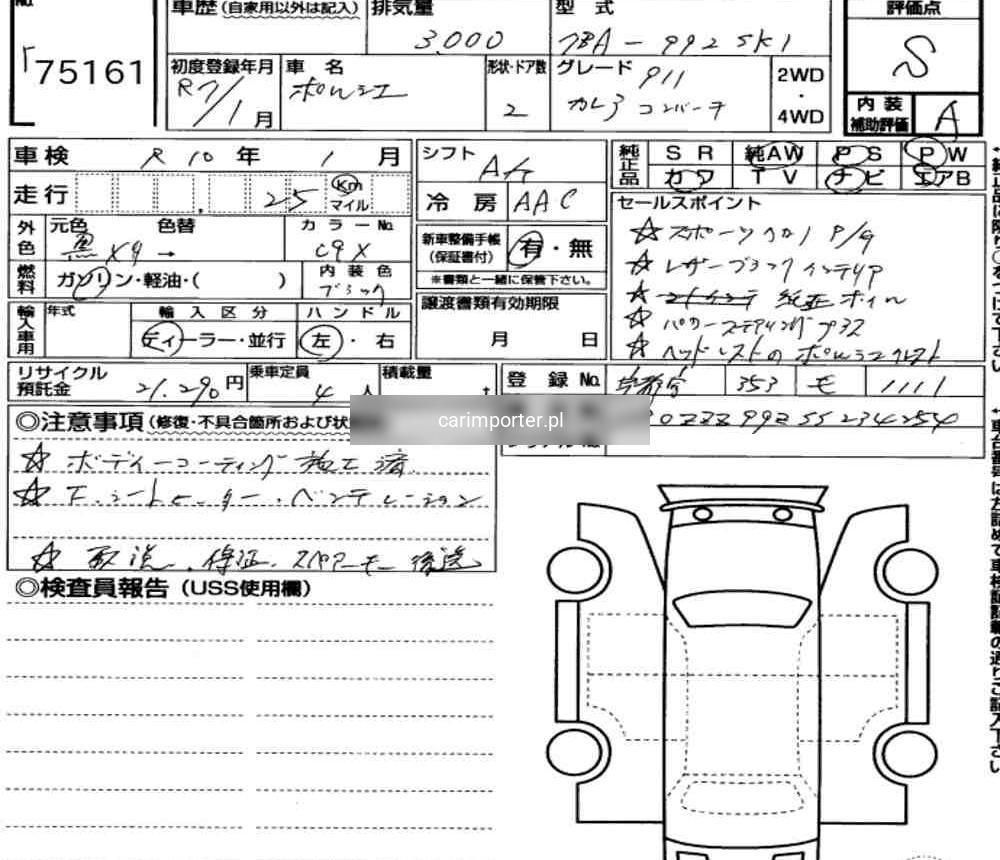 No.
車歴(自家用以外は記入) 排気量 型 式 評価点
75161
3,000 7BA-992SK1 S
初度登録年月 車 名 形状・ドア数 グレード 2WD・4WD
R7/1月 ポルシェ 2 911 カレラ コンバーチ
内装補助評価 A
車 検 R 10 年 1 月
シフト AT
純正品 SR 純AW PS PW
カワ TV ナビ エアB
走 行 25 Km マイル
冷 房 AAC
セールスポイント
外色 元色 色替 カラーNo.
黒 X9 → C9X
新車整備手帳(保証書付) 有・無
※書類と一緒に保管下さい。
☆スポーツクロノ P/G
☆レザーブラックインテリア
燃料 ガソリン・軽油・( ) 内装色 ブラック
純正ホイル
譲渡書類有効期限
月 日
☆パワーステアリングプラス
☆ヘッドレストのポルシェクレスト
輸入車用 年式 輸入区分 ハンドル
ディーラー・並行 左・右
リサイクル預託金 21,290円 乗車定員 4人 積載量 t
登 録 No. 353 モ 1111
◎注意事項(修復・不具合箇所および状
carimporter.pl
0ZZZ99ZSS234254
☆ボディーコーティング施工済
☆F.シートヒーター・ベンチレーション
☆取説、保証、スペアーキー後送
◎検査員報告(USS使用欄)